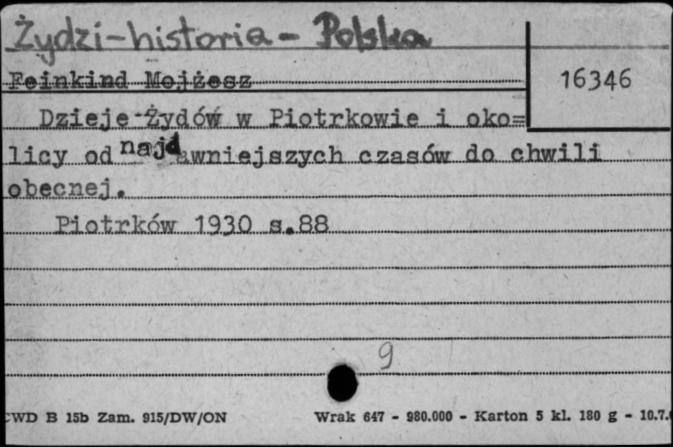 Żydzi-historia - Polska
Feinkind Mojżesz
16346
Dzieje Żydów w Piotrkowie i oko=
licy od najdawniejszych czasów do chwili
obecnej.
Piotrków 1930 s.88
9
WD B 15b Zam. 915/DW/ON Wrak 647 - 980.000 - Karton 5 kl. 180 g - 10.7.